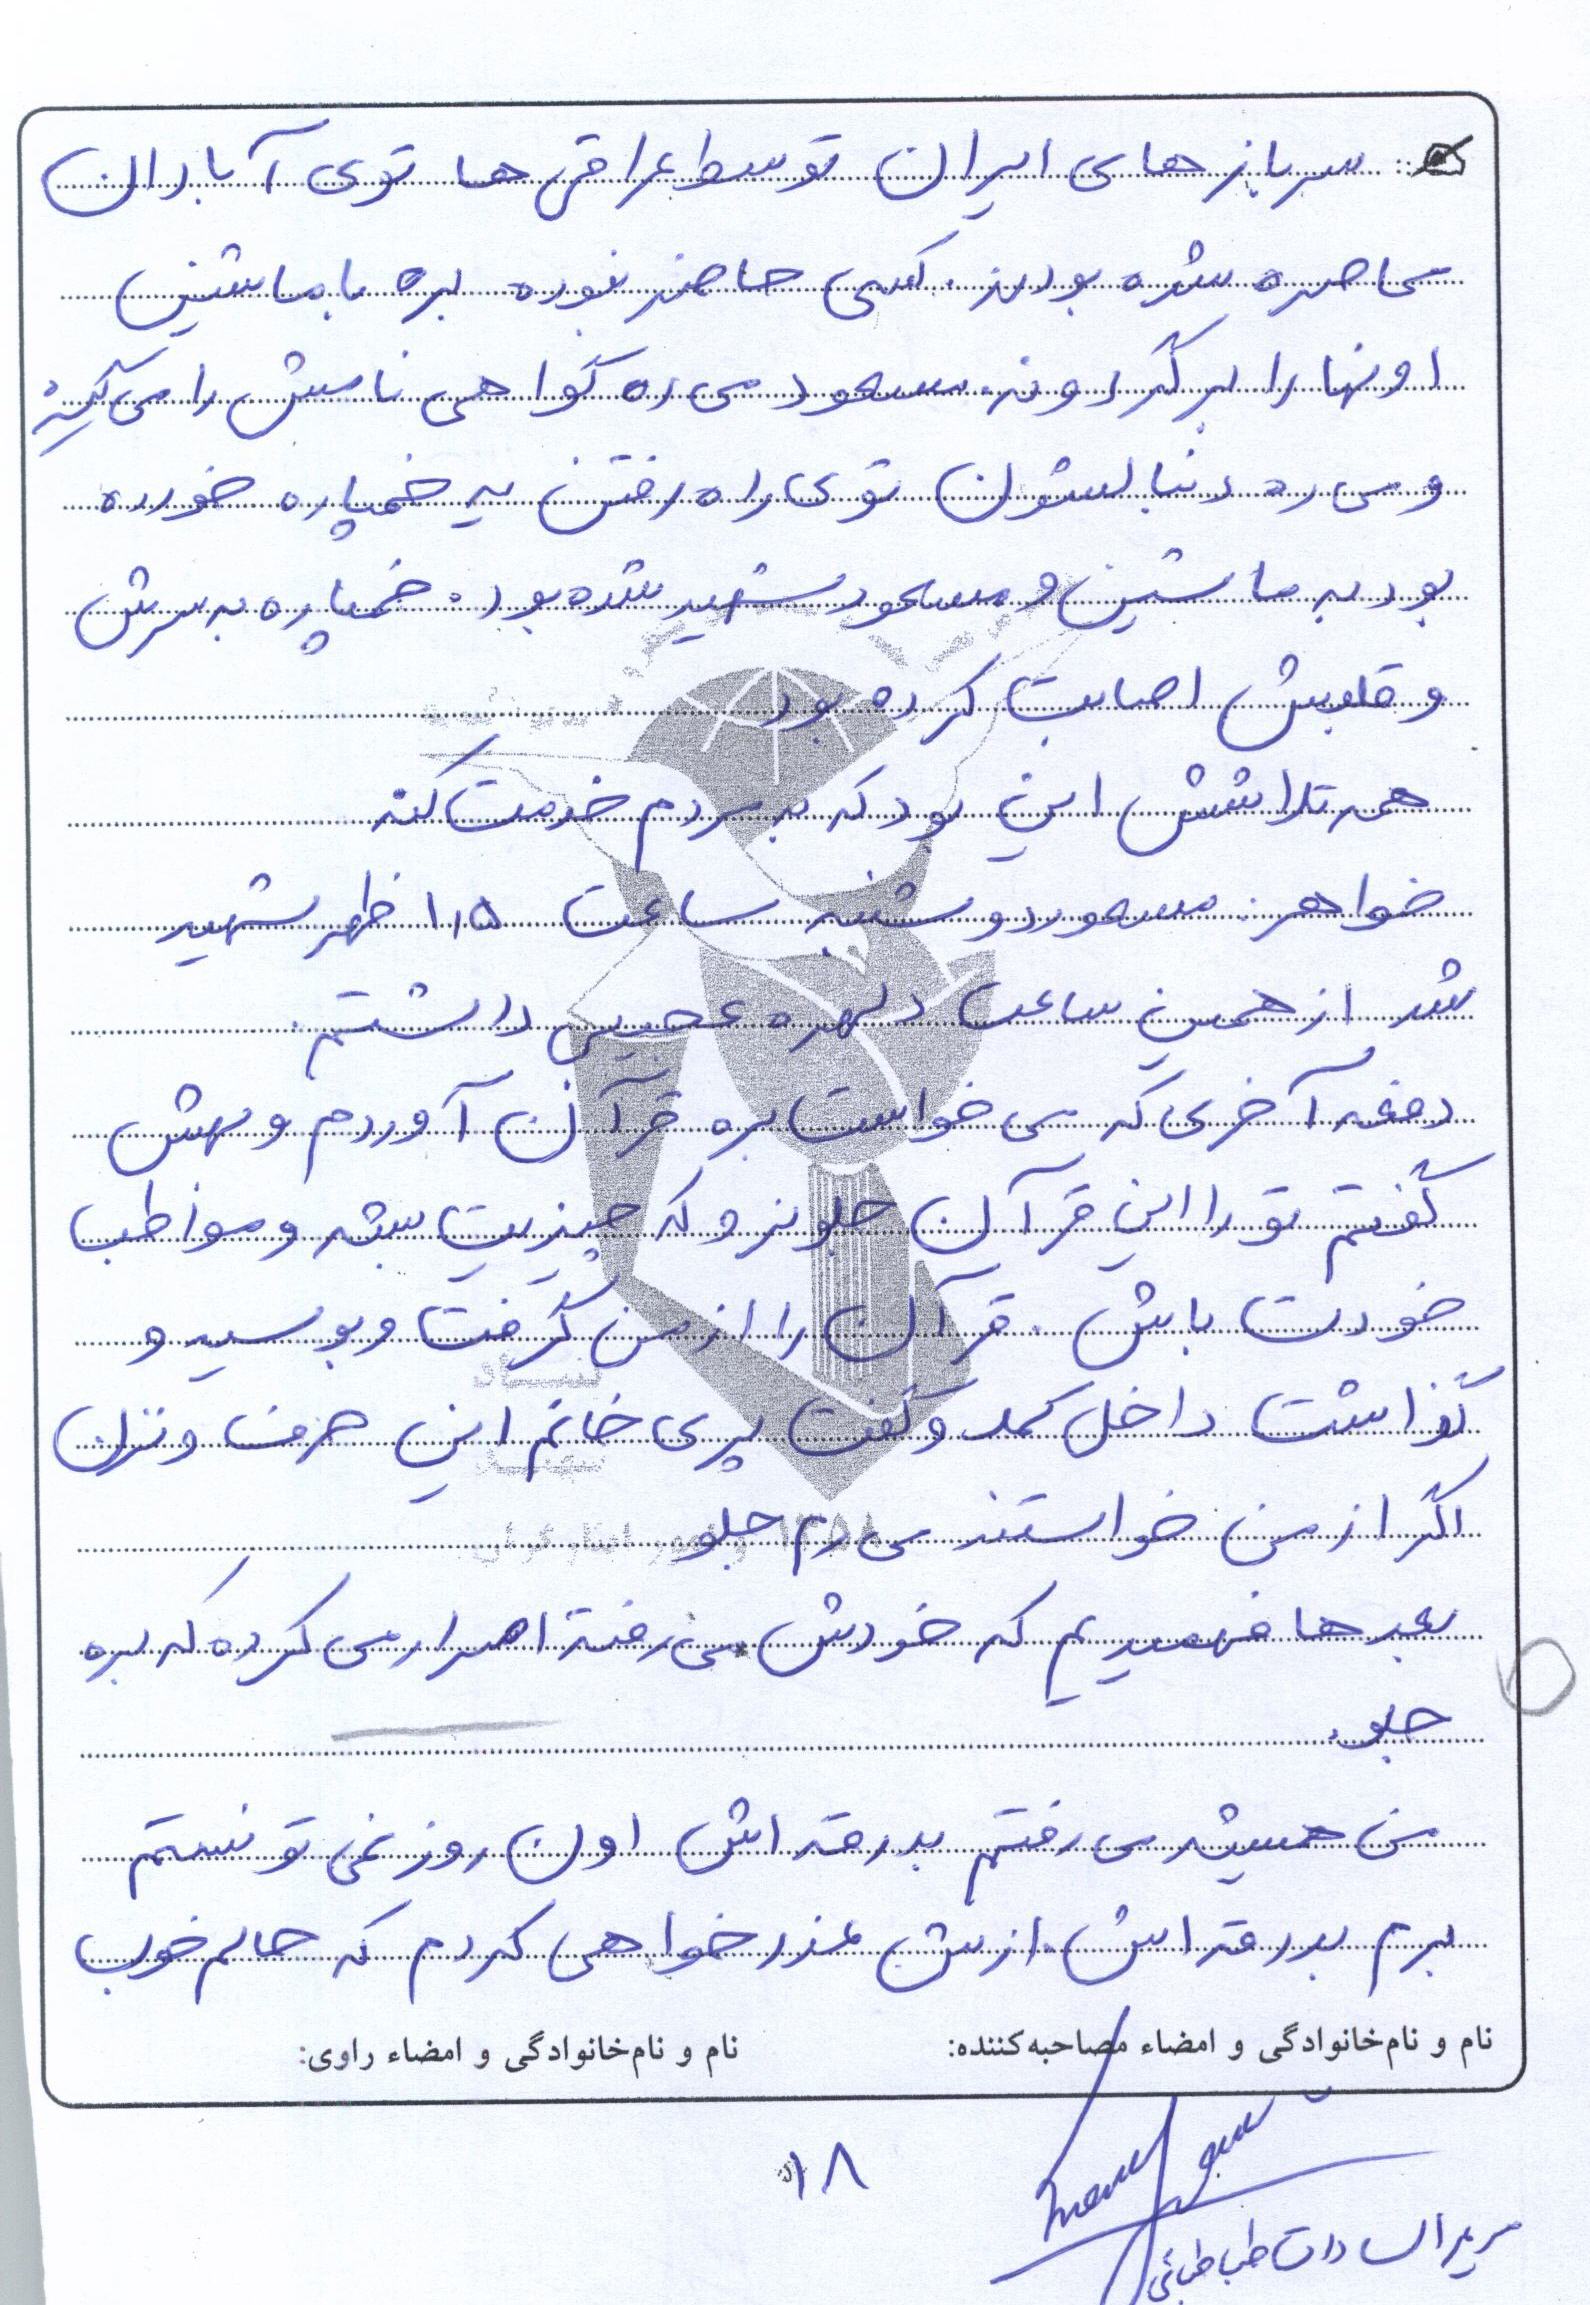 سربازهای ایران توسط عراقی ها توی آبادان
محاصره شده بودند. کسی حاضر نبوده بره با ماشین
اونها را برگردونه. مسعود می ره گواهی نامش را می گیره
و می ره دنبالشون توی راه رفتن یه خمپاره خورده
بود به ماشین و مسعود شهید شده بود. خمپاره به سرش
و قلبش اصابت کرده بود
همه تلاشش این بود که به مردم خدمت کنه
خواهر: مسعود دوشنبه ساعت ۱٫۵ ظهر شهید
شد از همین ساعت دلهره عجیبی داشتم.
دفعه آخری که می خواست بره قرآن آوردم و بهش
گفتم تو را این قرآن جلو نرو که چیزیت بشه و مواظب
خودت باش. قرآن را از من گرفت و بوسید و
گذاشت داخل کمد و گفت پری خانم این حرف و نزن
اگر از من خواستند می رم جلو
بعدها فهمیدیم که خودش می رفته اصرار می کرده که بره
جلو.
من همیشه می رفتم بدرقه اش اون روز نمی تونستم
برم بدرقه اش. ازش عذرخواهی کردم که حالم خوب
نام و نام‌خانوادگی و امضاء مصاحبه‌کننده: نام و نام‌خانوادگی و امضاء راوی:
۱۸
مریم السادات طباطبائی